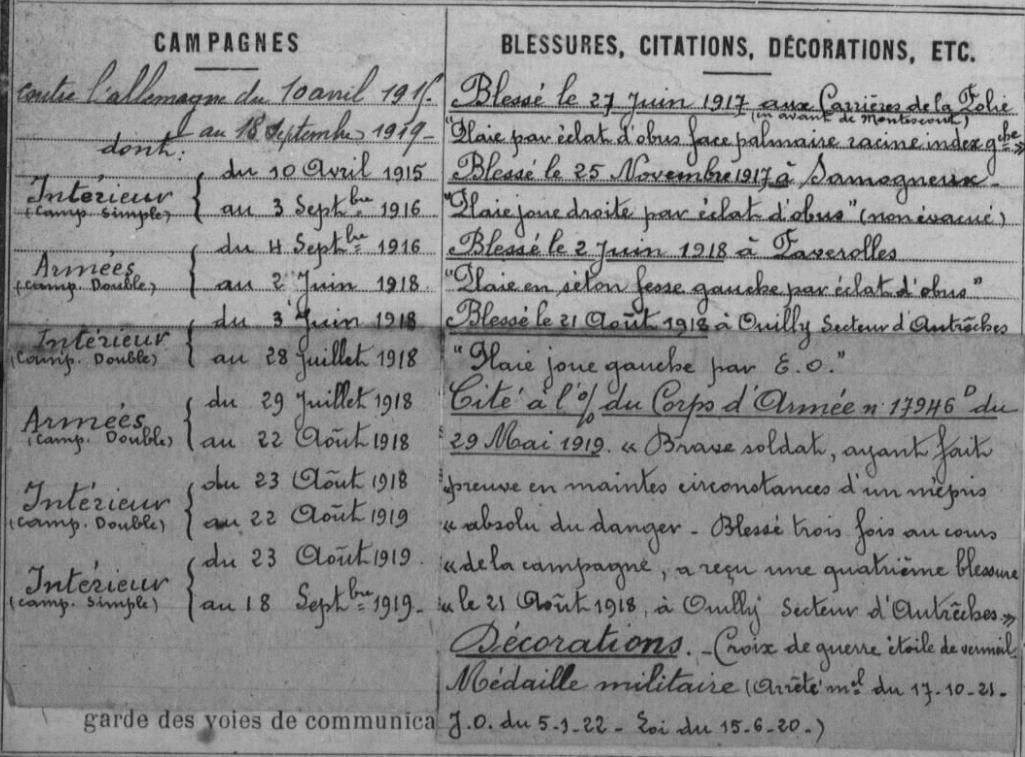 CAMPAGNES
contre l'allemagne du 10 avril 1915.
au 18 Septembre 1919 -
dont :
Intérieur
(Camp. Simple)
du 10 Avril 1915
au 3 Sept.bre 1916
Armées
(Camp. Double)
du 4 Sept.bre 1916
au 2 Juin 1918.
Intérieur
(Camp. Double)
du 3 Juin 1918
au 28 Juillet 1918
Armées
(Camp. Double)
du 29 Juillet 1918
au 22 Août 1918
Intérieur
(Camp. Double)
du 23 Août 1918
au 22 Août 1919
Intérieur
(Camp. Simple)
du 23 Août 1919.
au 18 Sept.bre 1919 -
garde des voies de communica
BLESSURES, CITATIONS, DÉCORATIONS, ETC.
Blessé le 27 Juin 1917 aux Carrières de la Folie
(en avant de Montescourt)
"Plaie par éclat d'obus face palmaire racine index gche »
Blessé le 25 Novembre 1917 à Samogneux -
"Plaie joue droite par éclat d'obus" (non évacué)
Blessé le 2 Juin 1918 à Faverolles
"Plaie en séton fesse gauche par éclat d'obus"
Blessé le 21 Août 1918 à Ouilly Secteur d'Autrêches
"Plaie joue gauche par E.O."
Cité à l'% du Corps d'Armée n° 17946 D du
29 Mai 1919. « Brave soldat, ayant fait
preuve en maintes circonstances d'un mépris
« absolu du danger - Blessé trois fois au cours
« de la campagne, a reçu une quatrième blessure
« le 21 Août 1918, à Ouilly Secteur d'Autrêches. »
Décorations. - Croix de guerre étoile de vermeil
Médaille militaire (Arrêté mel du 17-10-21-
J.O. du 5-1-22 - Loi du 15-6-20-)